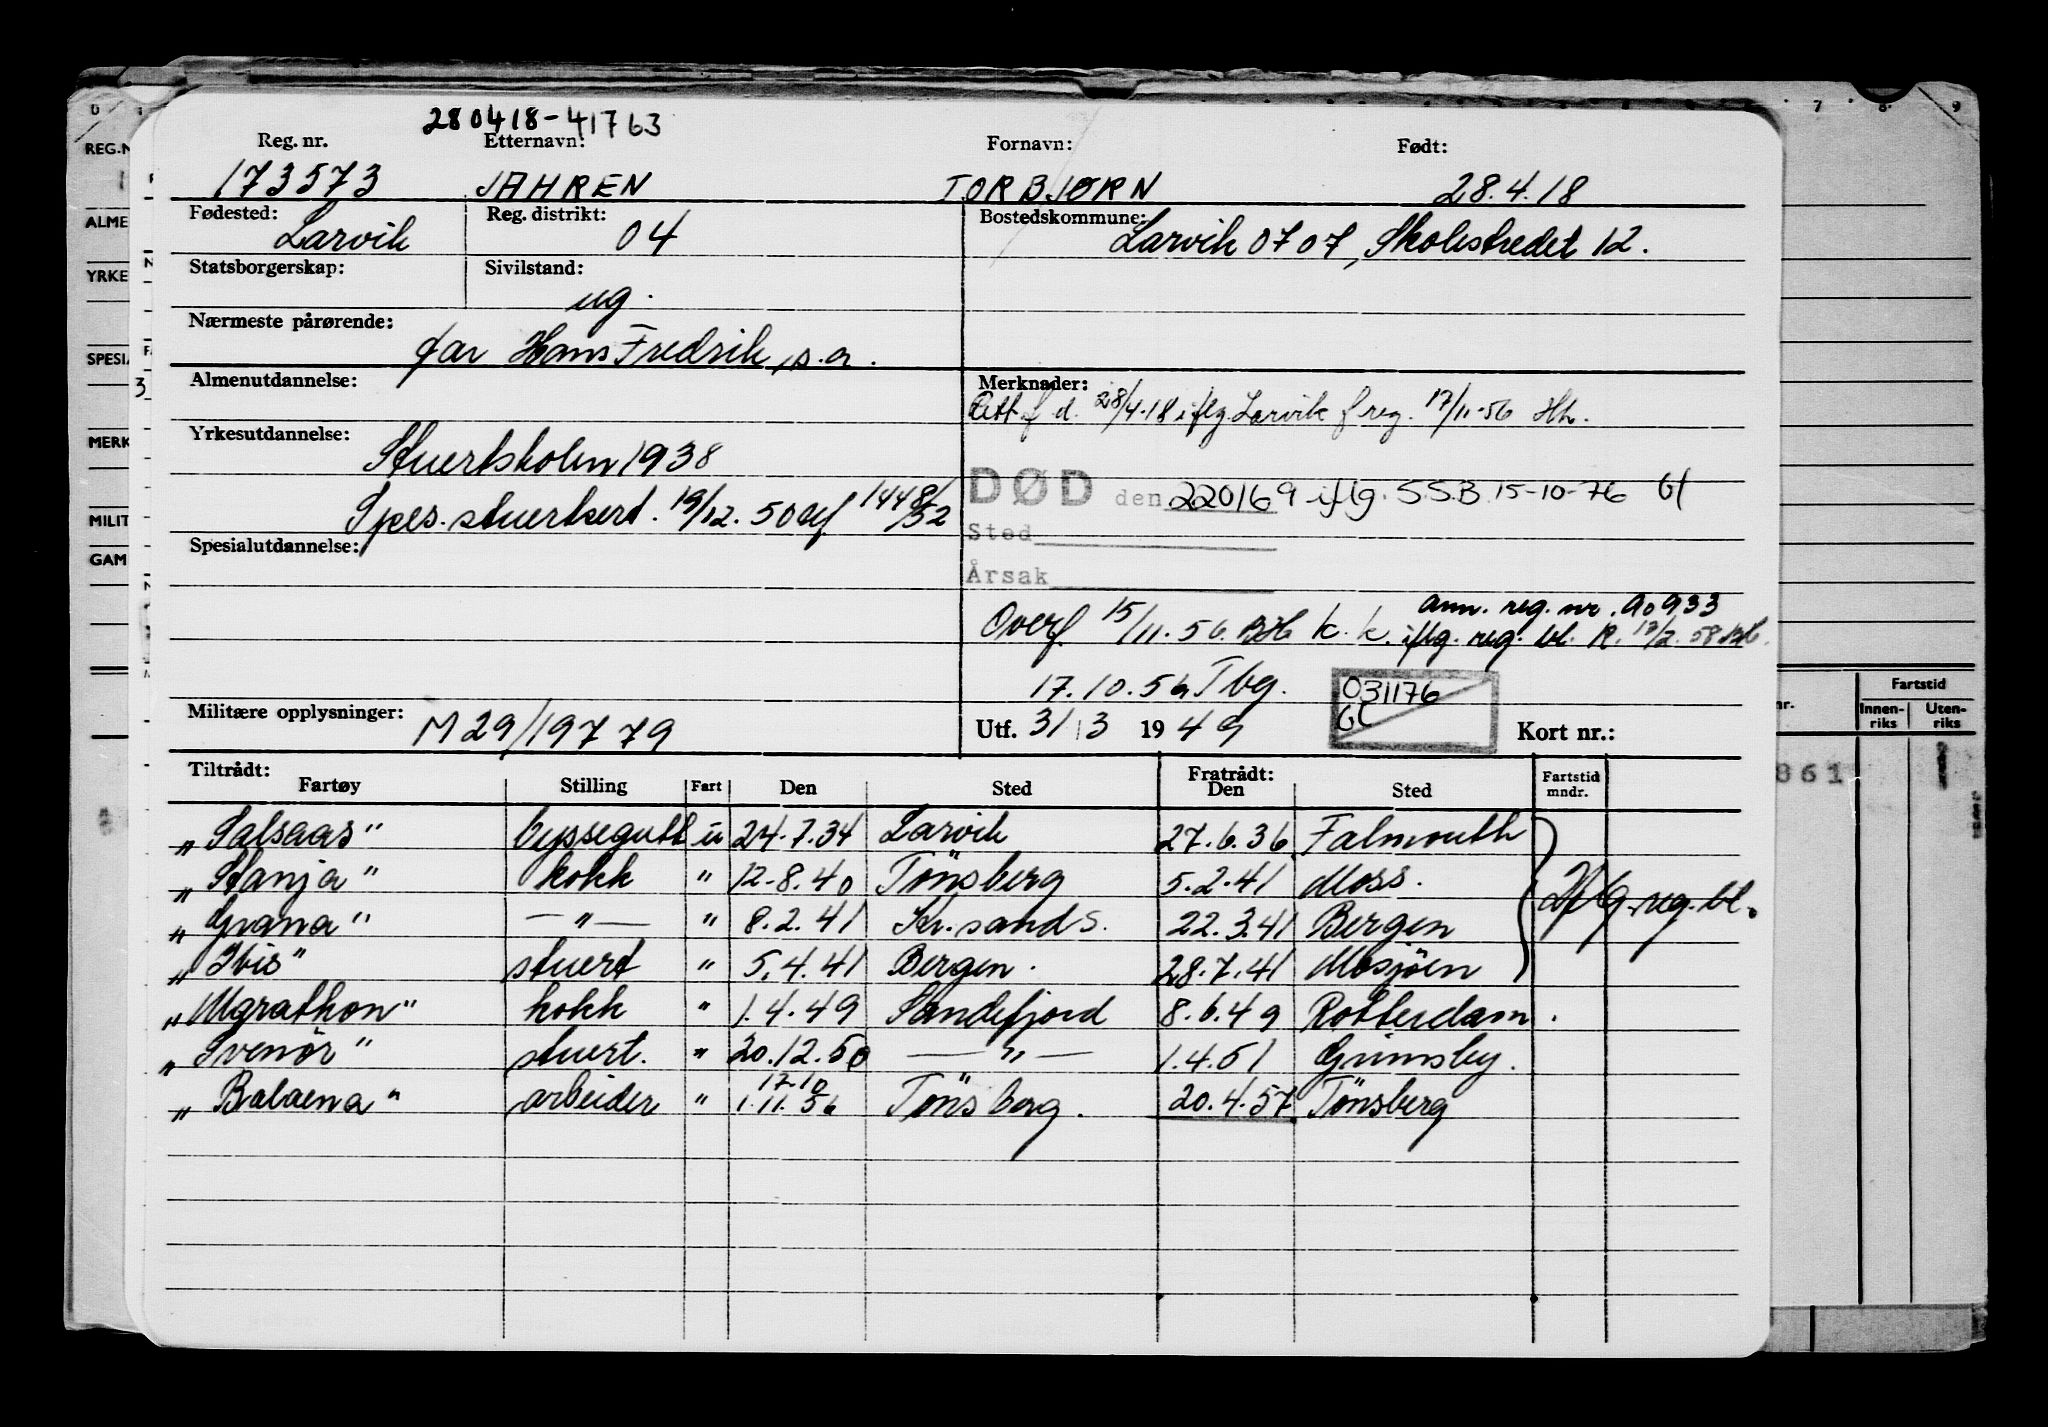 280418-41763
Reg. nr. Etternavn: Fornavn: Født:
173573 JAHREN TORBJØRN 28.4.18
Fødested: Larvik Reg. distrikt: 04 Bostedskommune: Larvik 0707, Skolestredet 12.
Statsborgerskap: Sivilstand: ug.
Nærmeste pårørende: far Hans Fredrik, s.a.
Almenutdannelse: Merknader:
Rett f. d. 28/4-18 iflg Larvik f reg. 17/11-56 Hh.
Yrkesutdannelse: Stuertskolen 1938
DØD den 220169 iflg. S.S.B 15-10-76 Gl
Spes. stuertsert. 19/12. 50 1448/52
Sted
Spesialutdannelse:
Årsak
ann. reg. nr. 90933
Overf 15/11.56. BH k. k. iflg. reg. bl. R. 13/2. 58
17.10.56 Tbg.
031176
Gl
Militære opplysninger: M 29/19779 Utf. 31/3 1949 Kort nr.:
Tiltrådt: Fratrådt:
Fartøy Stilling Fart Den Sted Den Sted Fartstid mndr.
"Salsaas" byssegutt u 24.7.34 Larvik 27.6.36 Falmouth
"Stanja" kokk " 12.8.40 Tönsberg 5.2.41 Moss.
Iflg. reg. bl.
"Grana" — " — " 8.2.41 Kr.sand S. 22.3.41 Bergen
"Ibis" stuert " 5.4.41 Bergen. 28.7.41 Mosjöen
"Marathon" kokk " 1.4.49 Sandefjord 8.6.49 Rotterdam.
"Svenör" stuert. " 20.12.50 — " — 1.4.51 Grimsby.
17.10
"Balaena" arbeider " 1.11.56 Tönsberg. 20.4.57 Tönsberg
REG.N
ALME
YRKE
SPESIA
3
MERK
MILIT
GAM
7 8 9
Fartstid
nr. Innen-riks Uten-riks
861